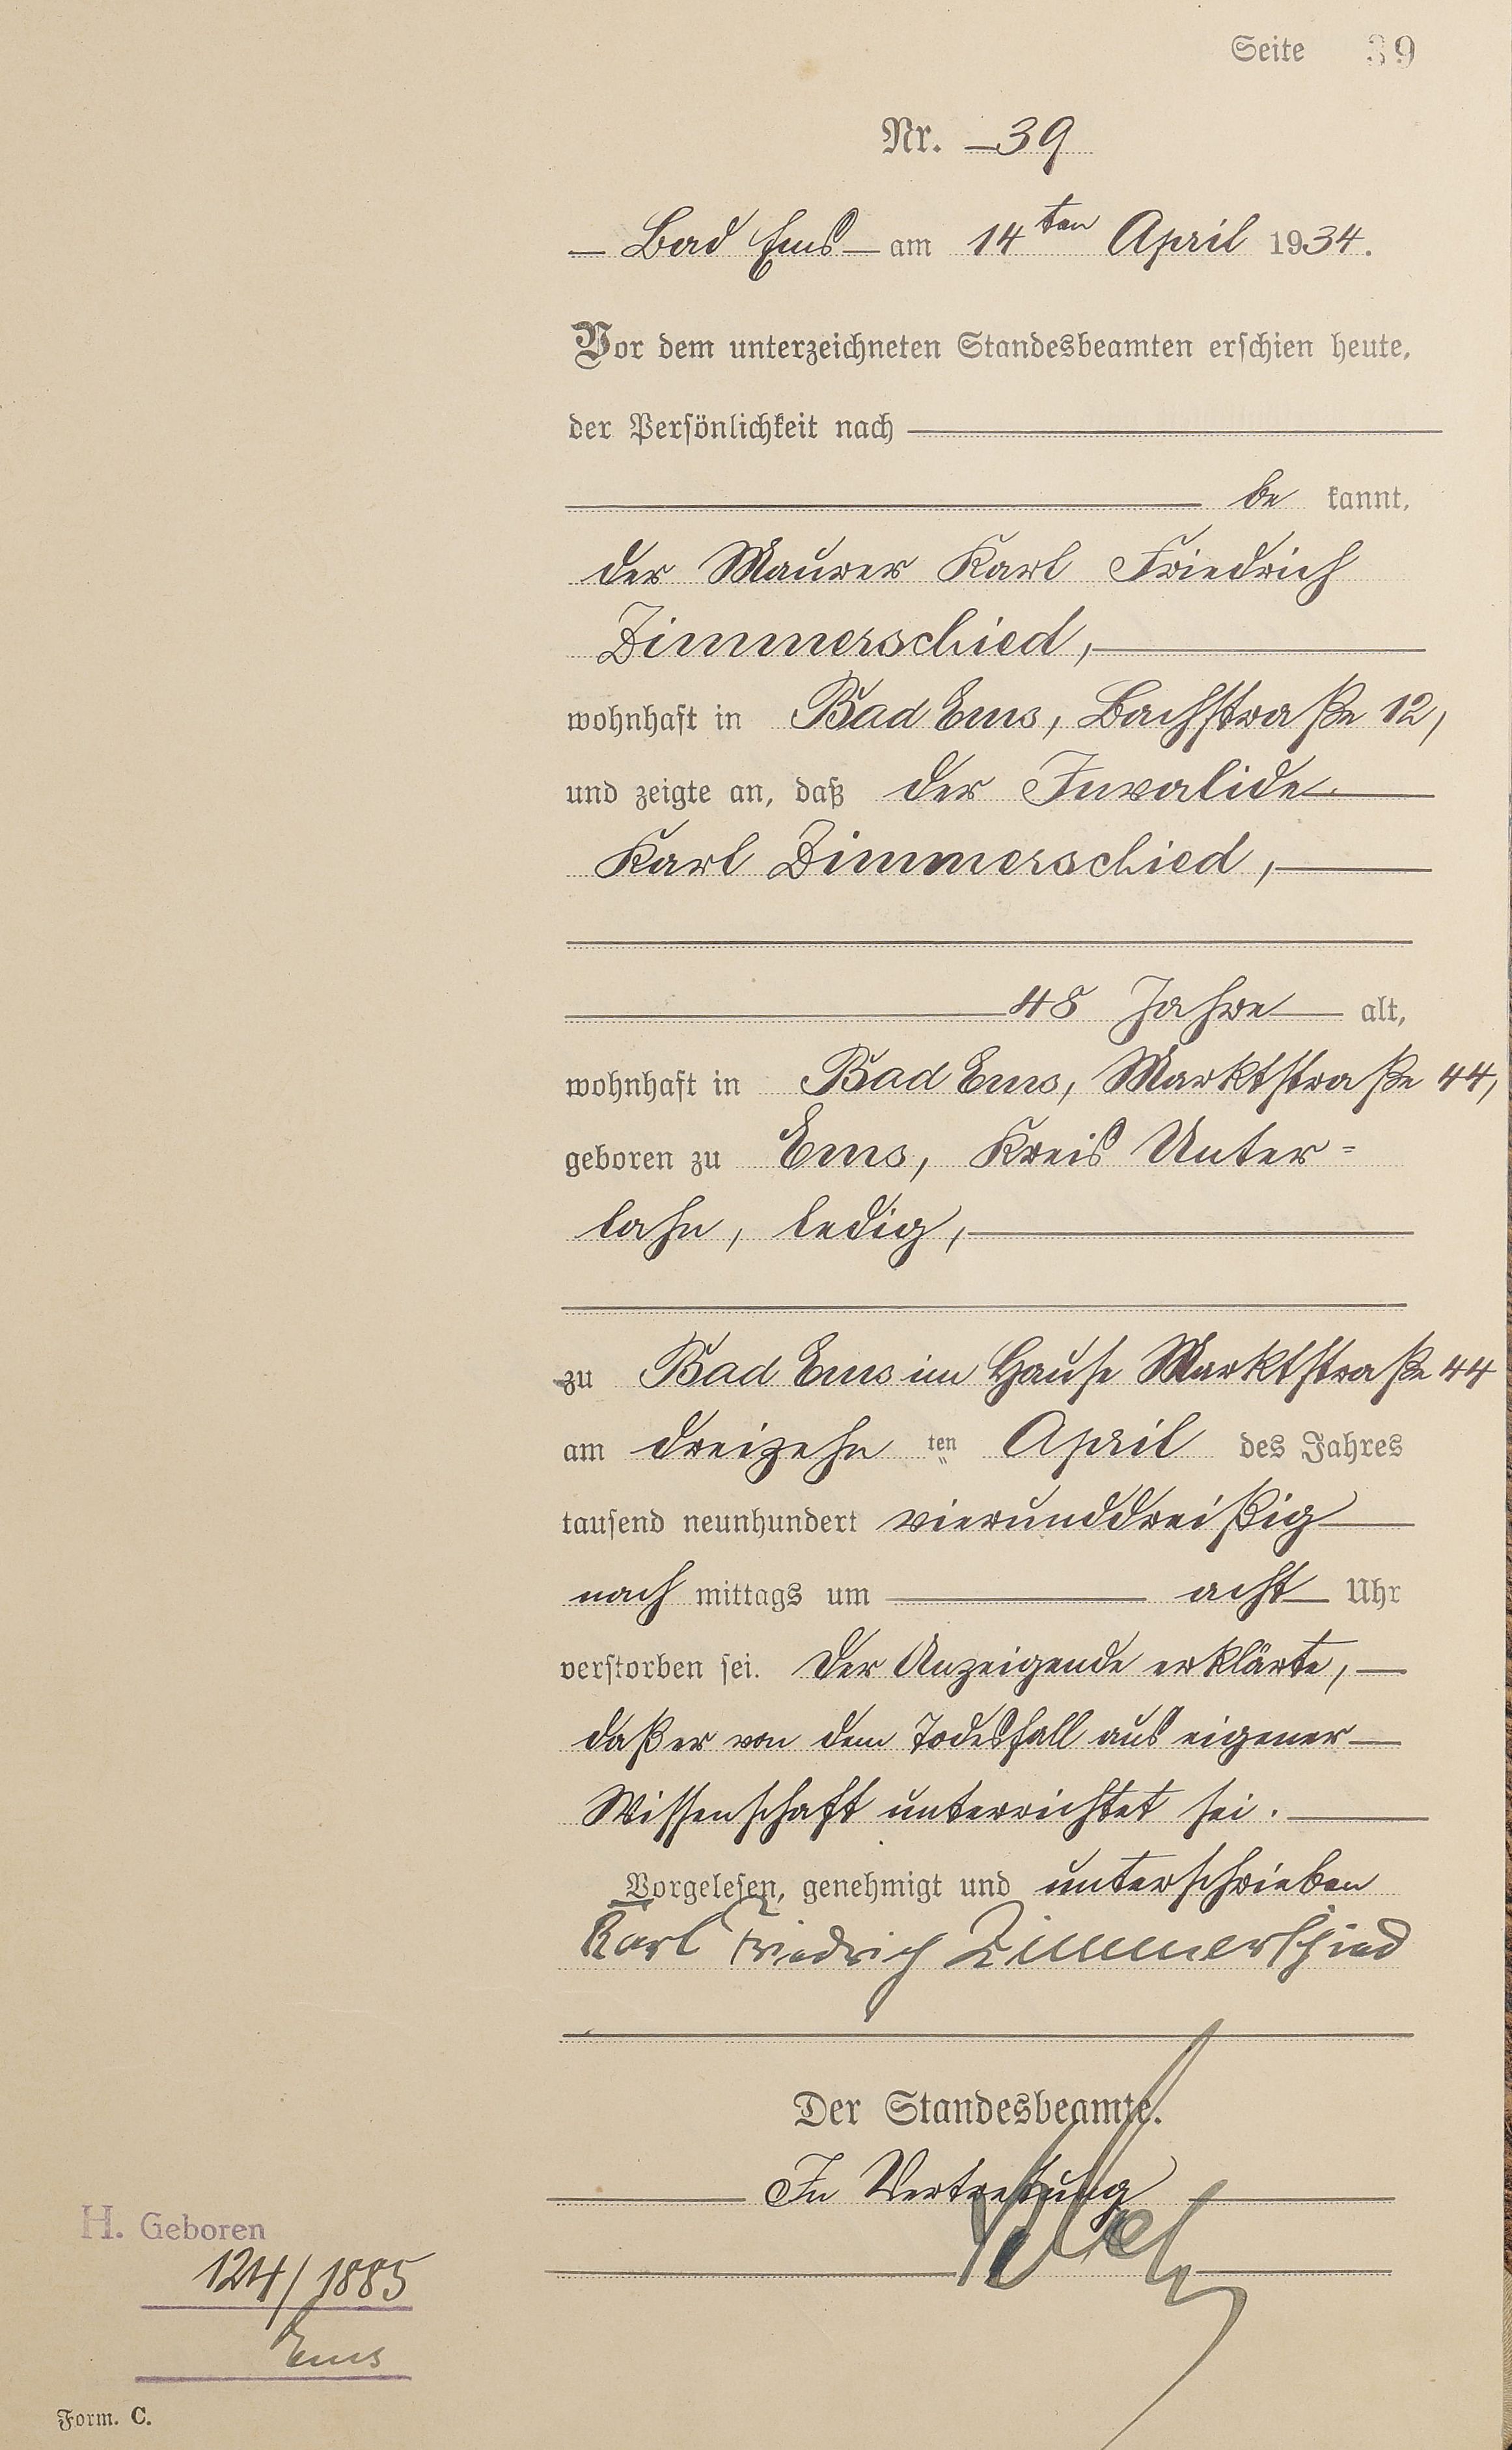 Seite 39
Nr. 39
Bad Ems am 14ten April 1934.
Vor dem unterzeichneten Standesbeamten erschien heute,
der Persönlichkeit nach
be kannt,
der Maurer Karl Friedrich
Zimmerschied,
wohnhaft in Bad Ems, Bachstraße 12,
und zeigte an, daß der Invalide
Karl Zimmerschied,
48 Jahre alt,
wohnhaft in Bad Ems, Marktstraße 44,
geboren zu Ems, Kreis Unter=
lahn, ledig,
zu Bad Ems im Hause Marktstraße 44
am dreizehn ten April des Jahres
tausend neunhundert vierunddreißig
nach mittags um acht Uhr
verstorben sei. Der Anzeigende erklärte,
daß er von dem Todesfall aus eigener
Wissenschaft unterrichtet sei.
Vorgelesen, genehmigt und unterschrieben
Karl Friedrich Zimmerschied
Der Standesbeamte.
In Vertretung
H. Geboren
124/1885
Ems
Form. C.